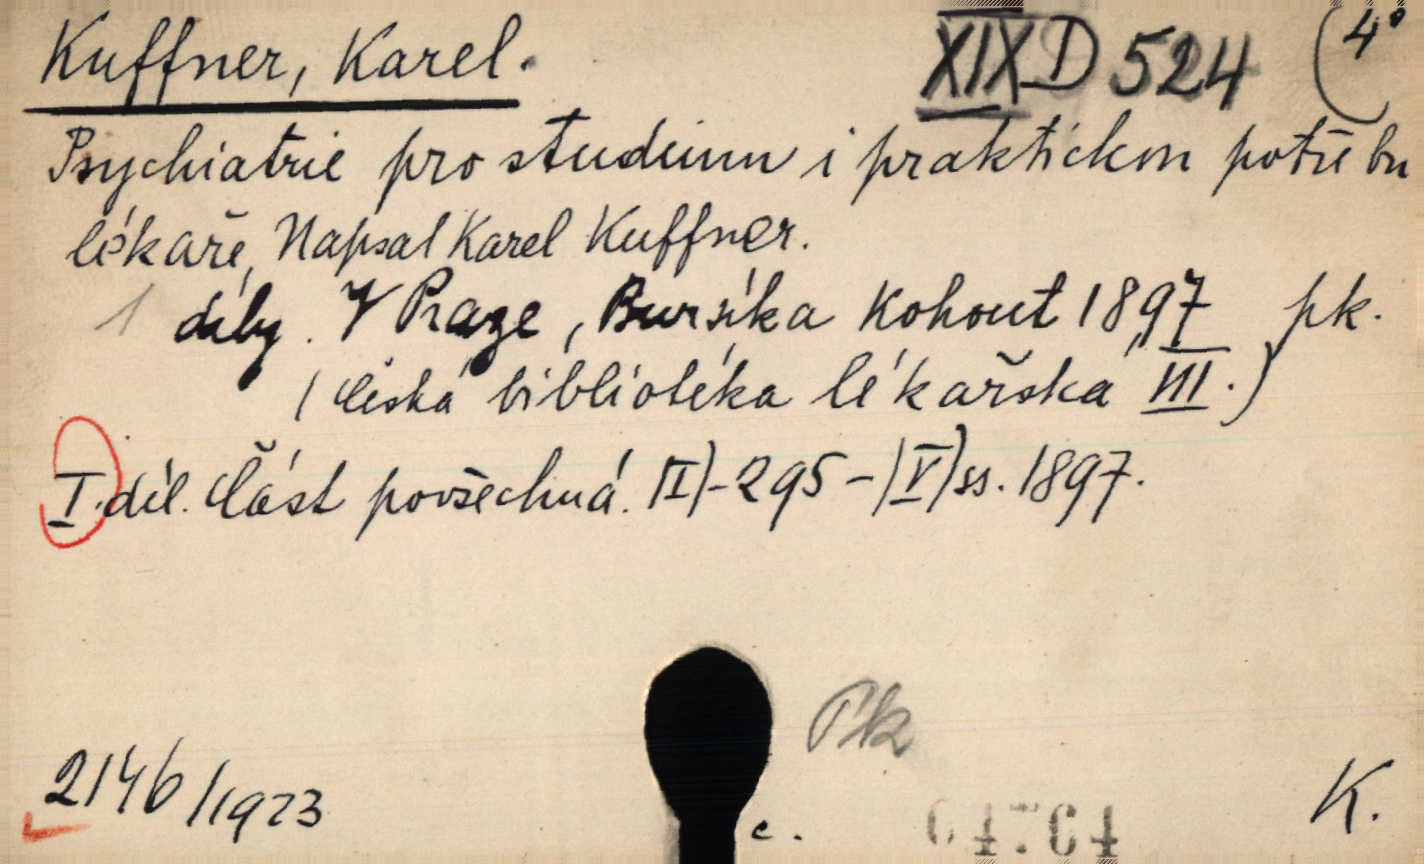 Kuffner, Karel. XIX D 524 (4°
Psychiatrie pro studium i praktickou potřebu
lékaře, Napsal Karel Kuffner.
1 díly. V Praze, Bursík a Kohout 1897 pk.
(Česká bibliotéka lékařská III.)
I. díl. Část povšechná. (I)-295-(V) ss. 1897.
Pk
2146/1923 K.
c. 64764